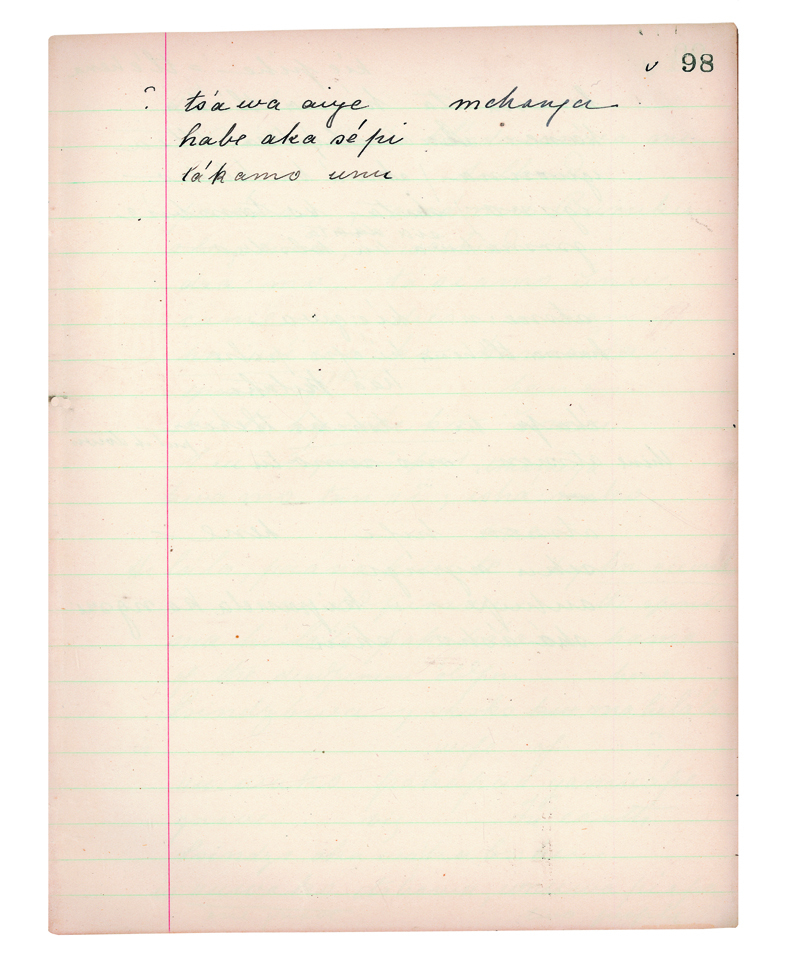 ✓ 98
? ts'a wa aiye mchanga
habe aka sépi
tákamo unu